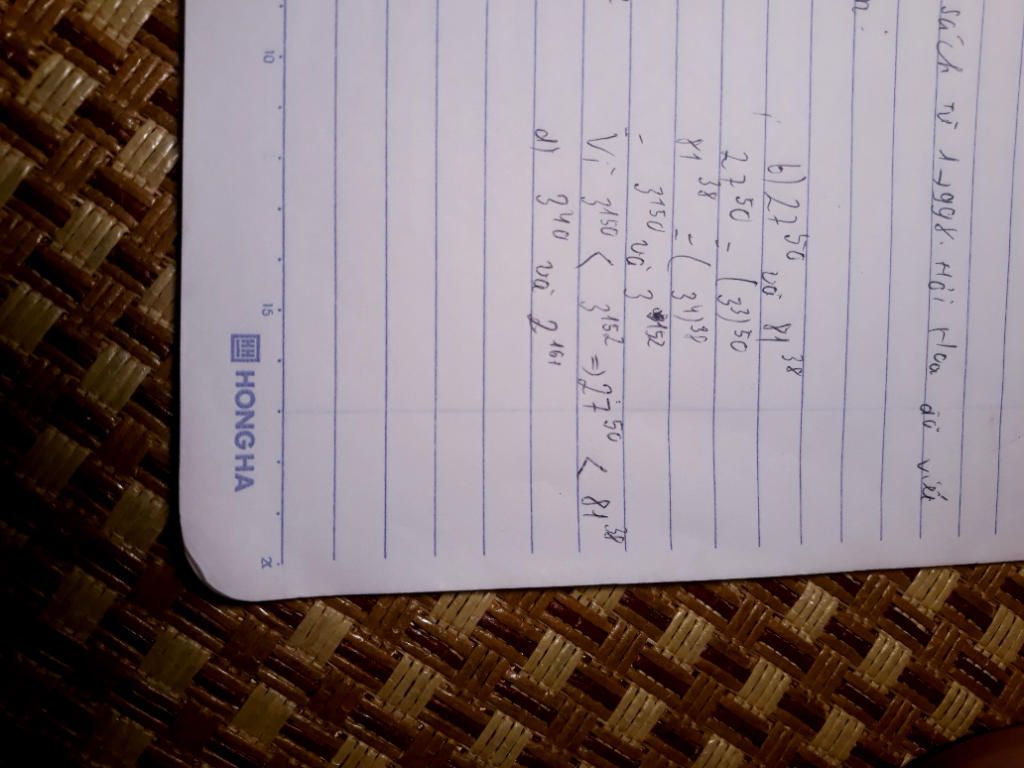 sách từ 1→998. Hỏi Hoa đã viết
b) 27^50 và 81^38
27^50 = (3^3)^50
81^38 = (3^4)^38
= 3^150 và 3^152
Vì 3^150 < 3^152 => 27^50 < 81^38
d) 3^40 và 2^161
HONG HA
10 15 20